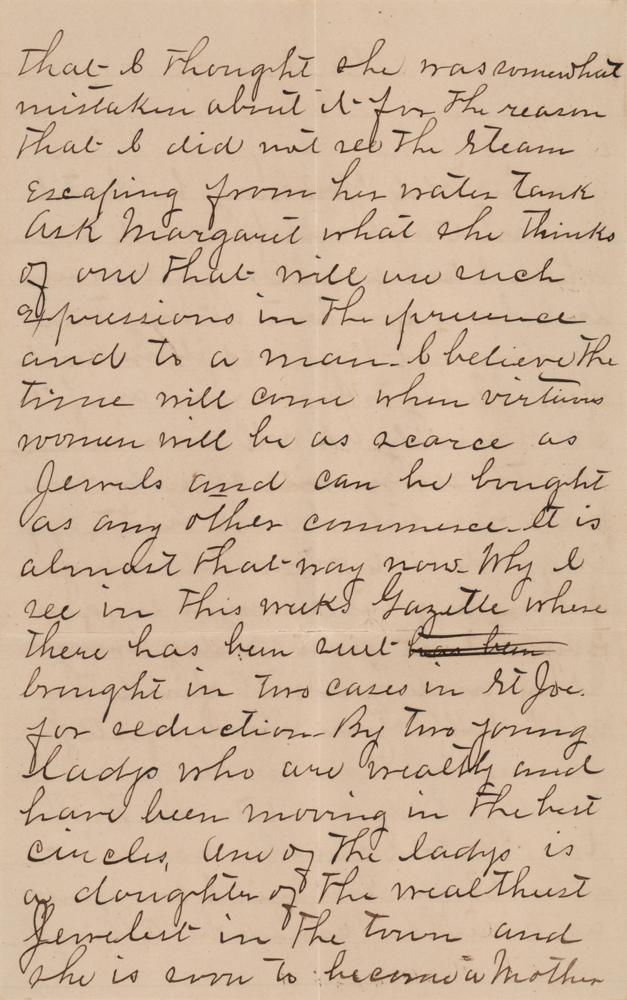 that I thought she was somewhat
mistaken about it for the reason
that I did not see the steam
escaping from her water tank
Ask Margaret what she thinks
of one that will use such
expressions in the presence
and to a man. I believe the
time will come when virtuous
women will be as scarce as
Jewels and can be bought
as any other commerce. It is
almost that way now. Why I
see in this weeks Gazette where
there has been suit has been
brought in two cases in St Joe.
for seduction. By two young
ladys who are wealthy and
have been moving in the best
circles, One of the ladys is
a daughter of the wealthiest
Jewelest in the town and
she is soon to become a Mother